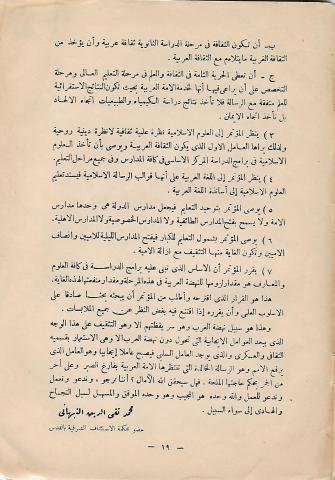 ب ـ أن تكون الثقافة فى مرحلة الدراسة الثانوية ثقافة عربية وأن يؤخذ من
الثقافة الغربية ما يتلاءم مع الثقافة العربية .
ج ـ أن تعطى الحرية التامة فى الثقافة والعلم فى مرحلة التعليم العالى ومرحلة
التخصص على أن يراعى فيها أنها لخدمة العربية بحيث تكون النتائج الاستقرائية
للعلم متفقة مع الرسالة فلا تأخذ نتائج دراسة الكيمياء والطبيعيات اتجاه الالحاد
بل تأخذ اتجاه الايمان .
٣ ) ينظر المؤتمر إلى العلوم الاسلامية نظرة علمية ثقافية لا نظرة دينية روحية
ولذلك يراها العامل الاول الذى يكون الثقافة العربية ويوصى بأن تأخذ العلوم
الاسلامية فى برامج الدراسة المركز الاساسى فى كافة المدارس وفى جميع مراحل التعليم .
٤ ) ينظر المؤتمر إلى اللغة العربية على أنها قوالب الرسالة الاسلامية فيسند تعليم
العلوم الاسلامية إلى أساتذة اللغة العربية .
٥ ) يوصى المؤتمر بتوحيد التعليم فيجعل مدارس الدولة هى وحدها مدارس
الامة ولا يسمح بفتح المدارس الطائفية ولا المدارس الخصوصية ولا المدارس الاهلية .
٦ ) يوصى المؤتمر بشمول التعليم للكبار فيفتح المدارس الليلية للاميين وانصاف
الاميين وتكون الغاية منها التثقيف مع ازالة الامية .
٧ ) يقرر المؤتمر أن الاساس الذى تبنى عليه برامج الدراسة فى كافة العلوم
والمعارف هو مقدار لزومها للنهضة العربية فى هذه المرحلة ومقدار منفعتها لهذه الغاية .
هذا هو القرار الذى اقترحه وأطلب من المؤتمر أن يبحثه بحثا صادقا على
الاسلوب العلمى وأن يقرره إذا اقتنع فيه بغض النظر عن جميع الملابسات .
وهذا هو سبيل نهضة العرب وهو سر يقظتهم ألا وهو التثقيف على هذا الوجه
الذى يبعد العوامل الايجابية التى تحول دون نهضة العرب ألا وهى الاستعمار بقسميه
الثقافى والعسكرى والذى يوجد العامل السلبى فيصبح عاملا إيجابيا وهو العامل الذى
يرفع الامم وهو الرسالة الخالدة التى تنتظرها الامة العربية بفارغ الصبر وعلى أحر
من الجمر بحكم حاجتها الملحة . فهل سيحقق الله الآمال ؟ أننا نرجو ، وندعو ونعمل
وندعو للعمل والله وحده هو المجيب وهو وحده الموفق والمسهل لسبيل النجاح
والهادى إلى سواء السبيل .
محمد تقى الدين النبهانى
عضو محكمة الاستئناف الشرعية بالقدس
ـ ١٩ ـ